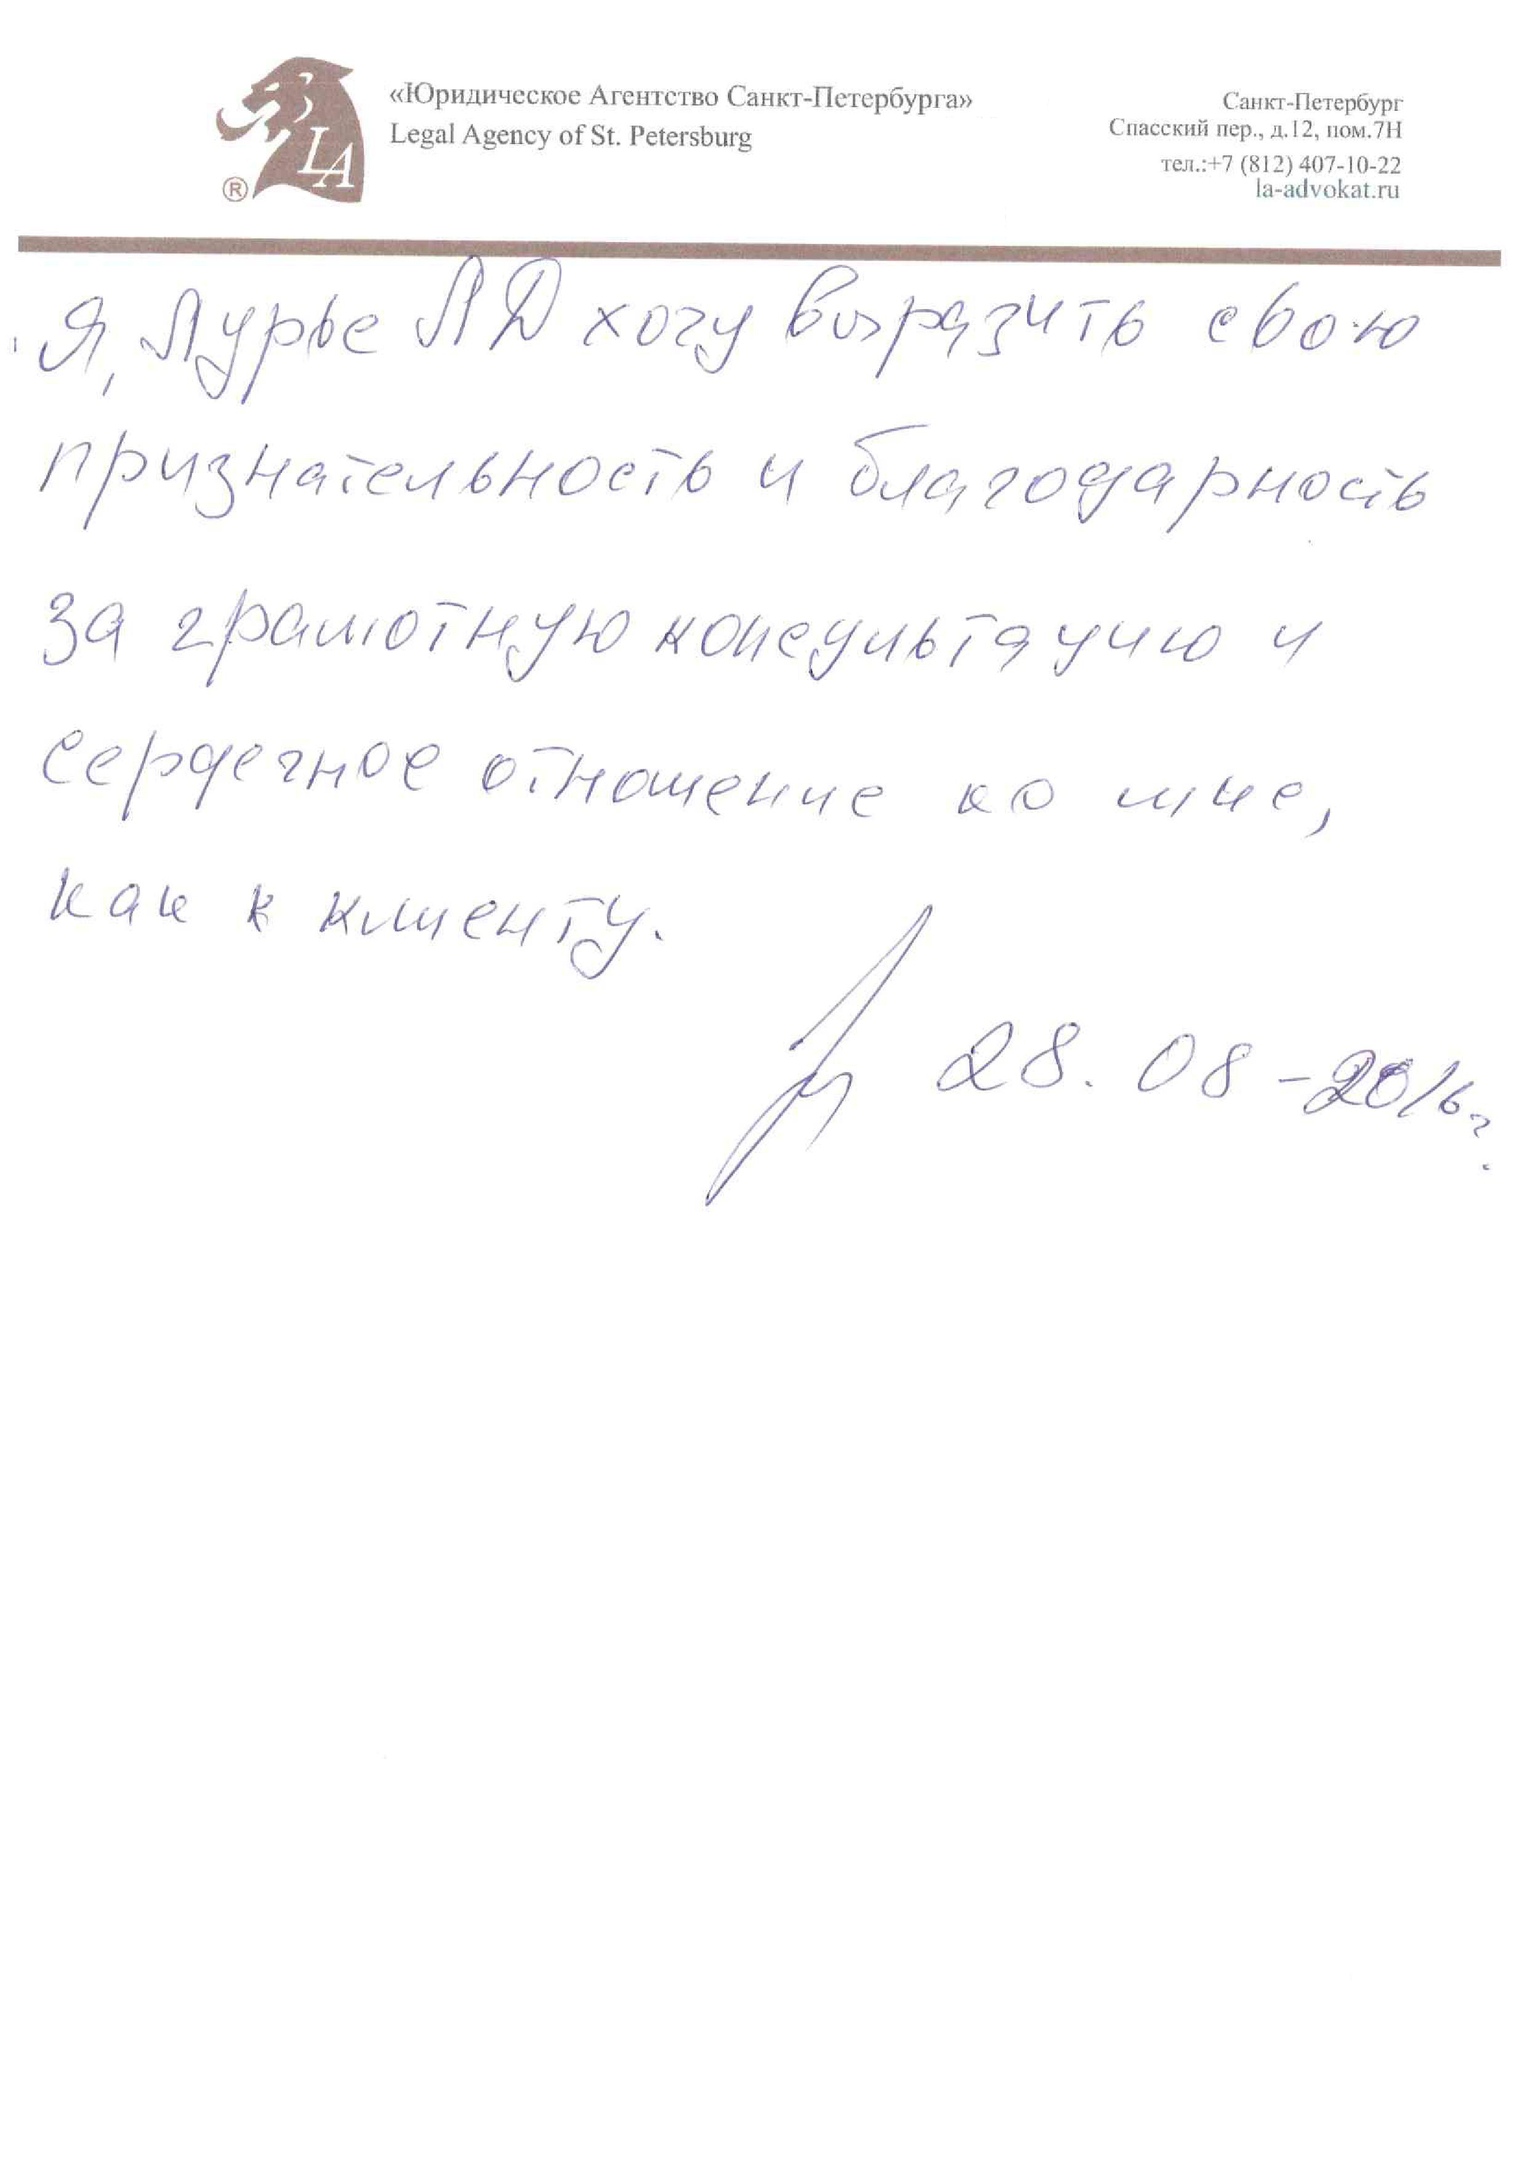 «Юридическое Агентство Санкт-Петербурга»
Legal Agency of St. Petersburg
LA
®
Санкт-Петербург
Спасский пер., д.12, пом.7Н
тел.:+7 (812) 407-10-22
la-advokat.ru
Я, Лурье Л Д хочу выразить свою
признательность и благодарность
за грамотную консультацию и
сердечное отношение ко мне,
как к клиенту.
28. 08 - 2016г.